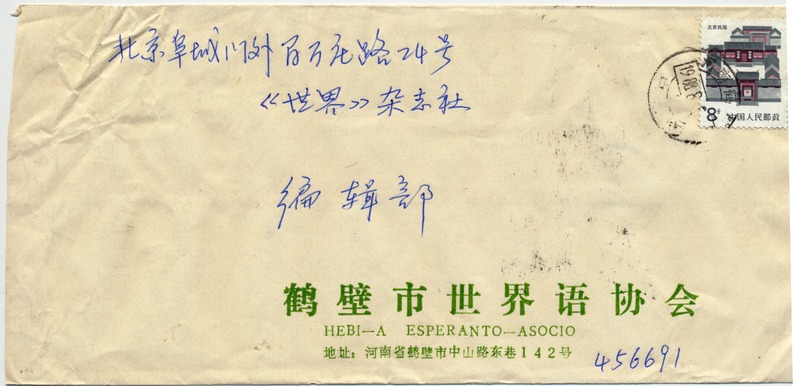 北京阜城门外百万庄路24号
《世界》杂志社
编辑部
北京民居
8分
中国人民邮政
鹤壁市世界语协会
HEBI—A ESPERANTO—ASOCIO
地址：河南省鹤壁市中山路东巷142号
456691